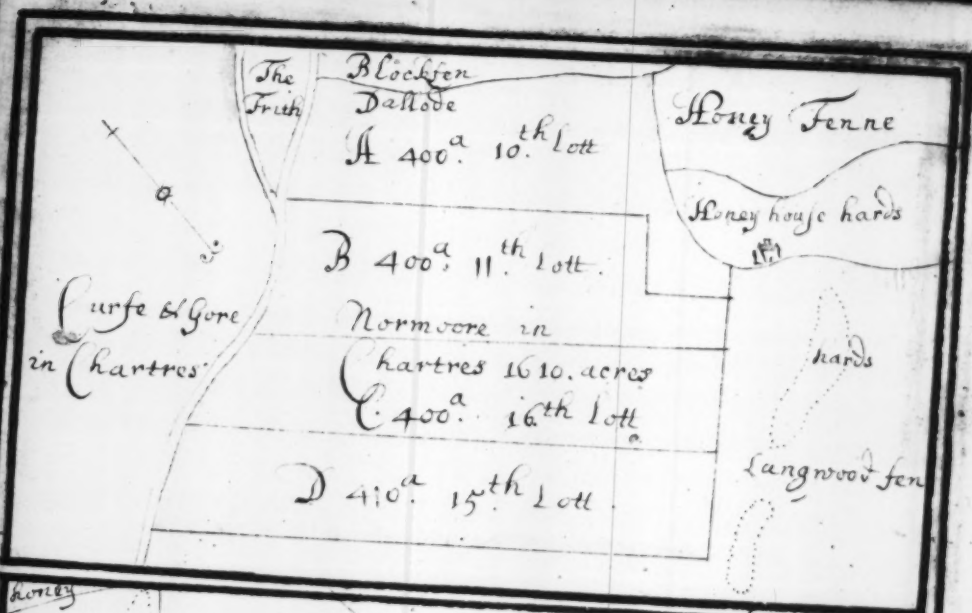 The
Frith
Blockfen
Dallode
A 400a. 10th Lott
Honey Fenne
Honey house hards
B 400a. 11th. Lott.
Curse & Gore
in Chartres
Normoore in
Chartres 1610. acres
C. 400a. 16th Lott
hards
Langwood fen
D 410a. 15th. Lott.
honey